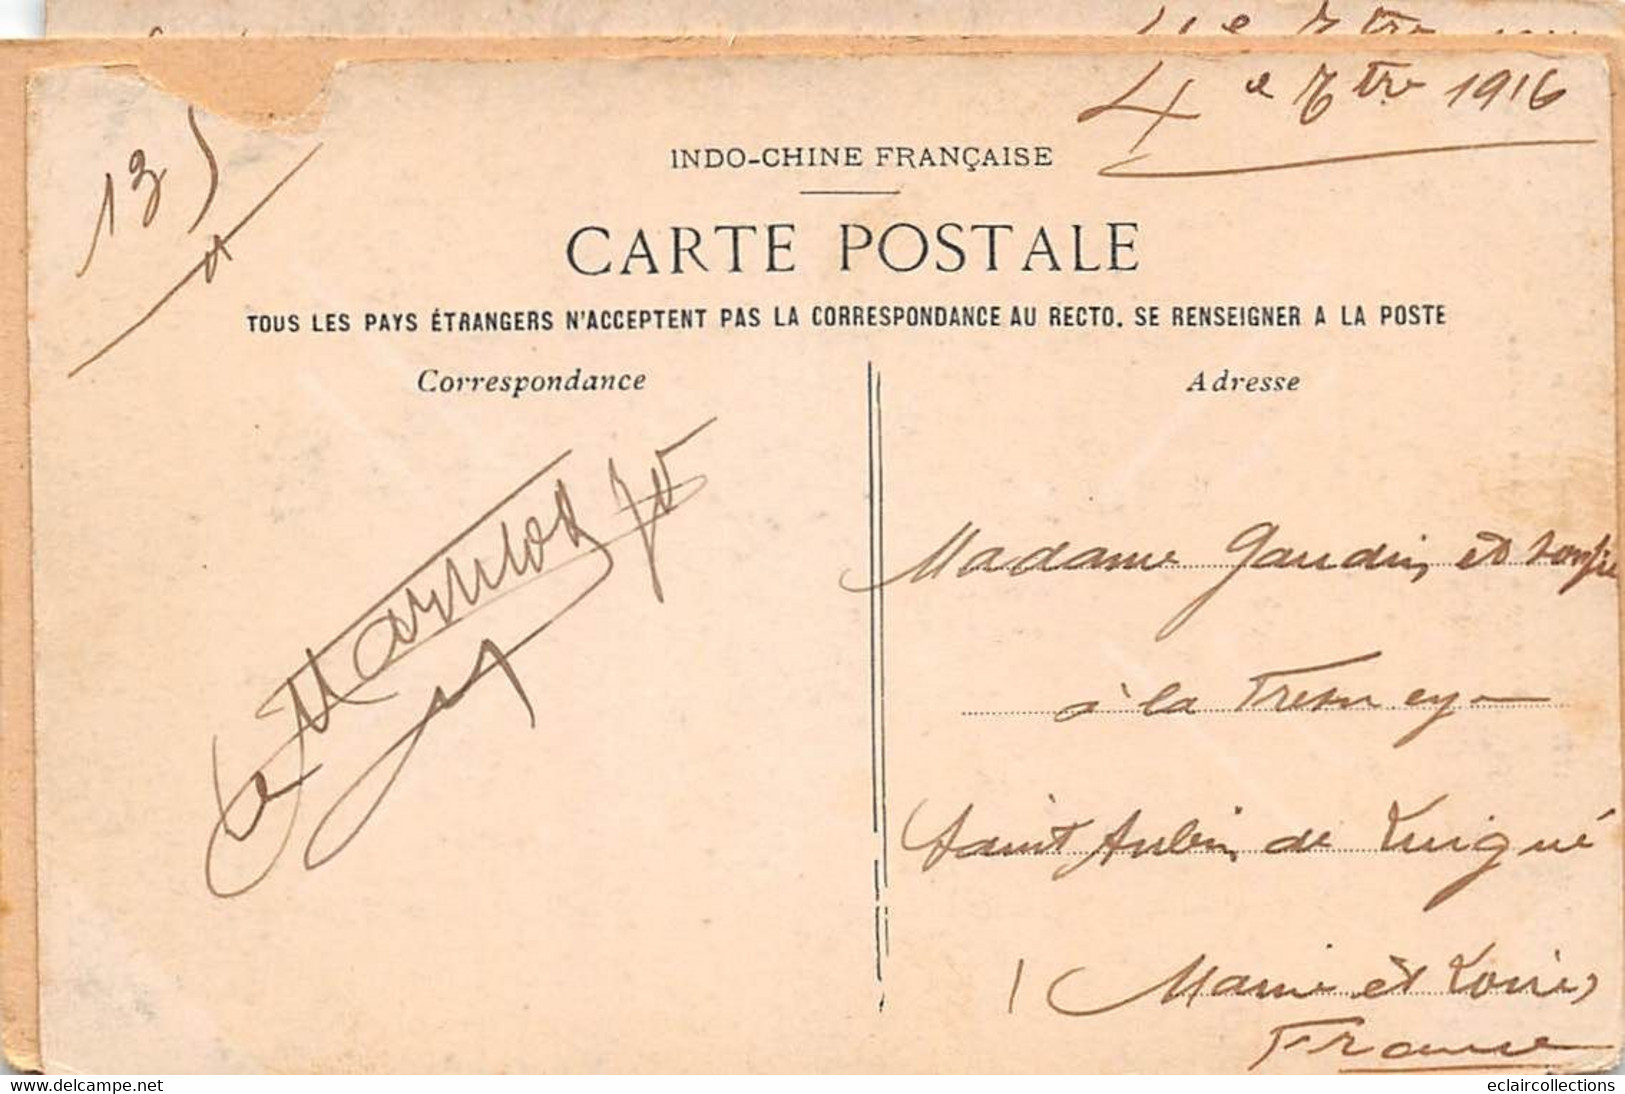 4 e 7tre 1916
135
INDO-CHINE FRANÇAISE
CARTE POSTALE
TOUS LES PAYS ÉTRANGERS N'ACCEPTENT PAS LA CORRESPONDANCE AU RECTO. SE RENSEIGNER A LA POSTE
Correspondance
Adresse
Madame Gaudin et
à la
Saint Aubin de Luigné
Maine et Loire
France
eclaircollections